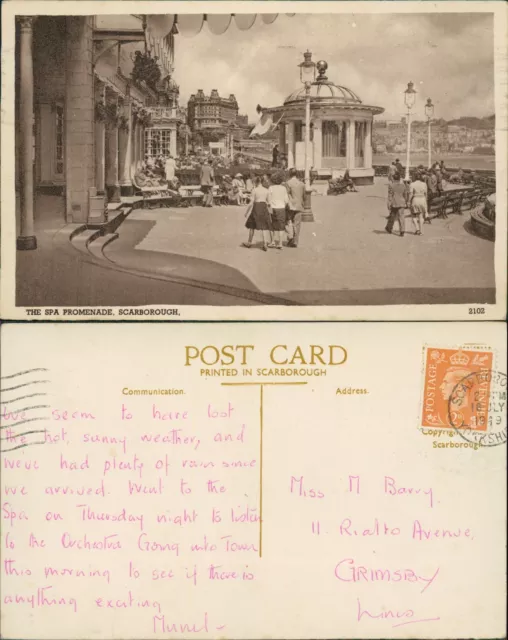 THE SPA PROMENADE, SCARBOROUGH,
2102
POST CARD
PRINTED IN SCARBOROUGH
Communication.
Address.
We seem to have lost
the hot, sunny weather, and
weve had plenty of rain since
we arrived. Went to the
Spa on Thursday night to listen
to the Orchestra Going into Town
this morning to see if there is
anything exciting
Muriel-
POSTAGE
JLY
1949
Copyright
Scarborough
Miss M Barry,
11 Rialto Avenue,
GRIMSBY
Lincs